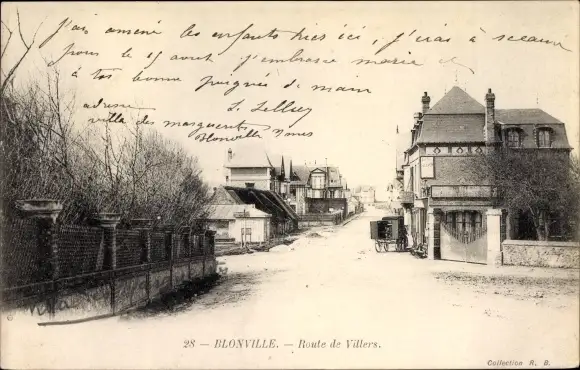 j'ai amené les enfants hier ici, j'irai à sceaux
pour le 15 aout, j'embrasse marie
à toi bonne poignée de main
S. Sellier
adresse
villa des marguerites
Blonville s/mer
28 - BLONVILLE. - Route de Villers.
Collection R. B.